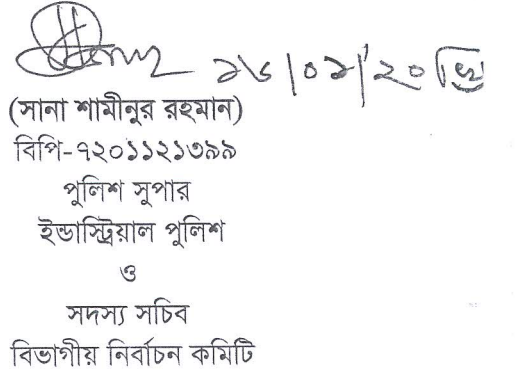 (সানা শামীনুর রহমান)
বিপি-৭২০১১২১৩৯৯
পুলিশ সুপার
ইন্ডাস্ট্রিয়াল পুলিশ
ও
সদস্য সচিব
বিভাগীয় নির্বাচন কমিটি